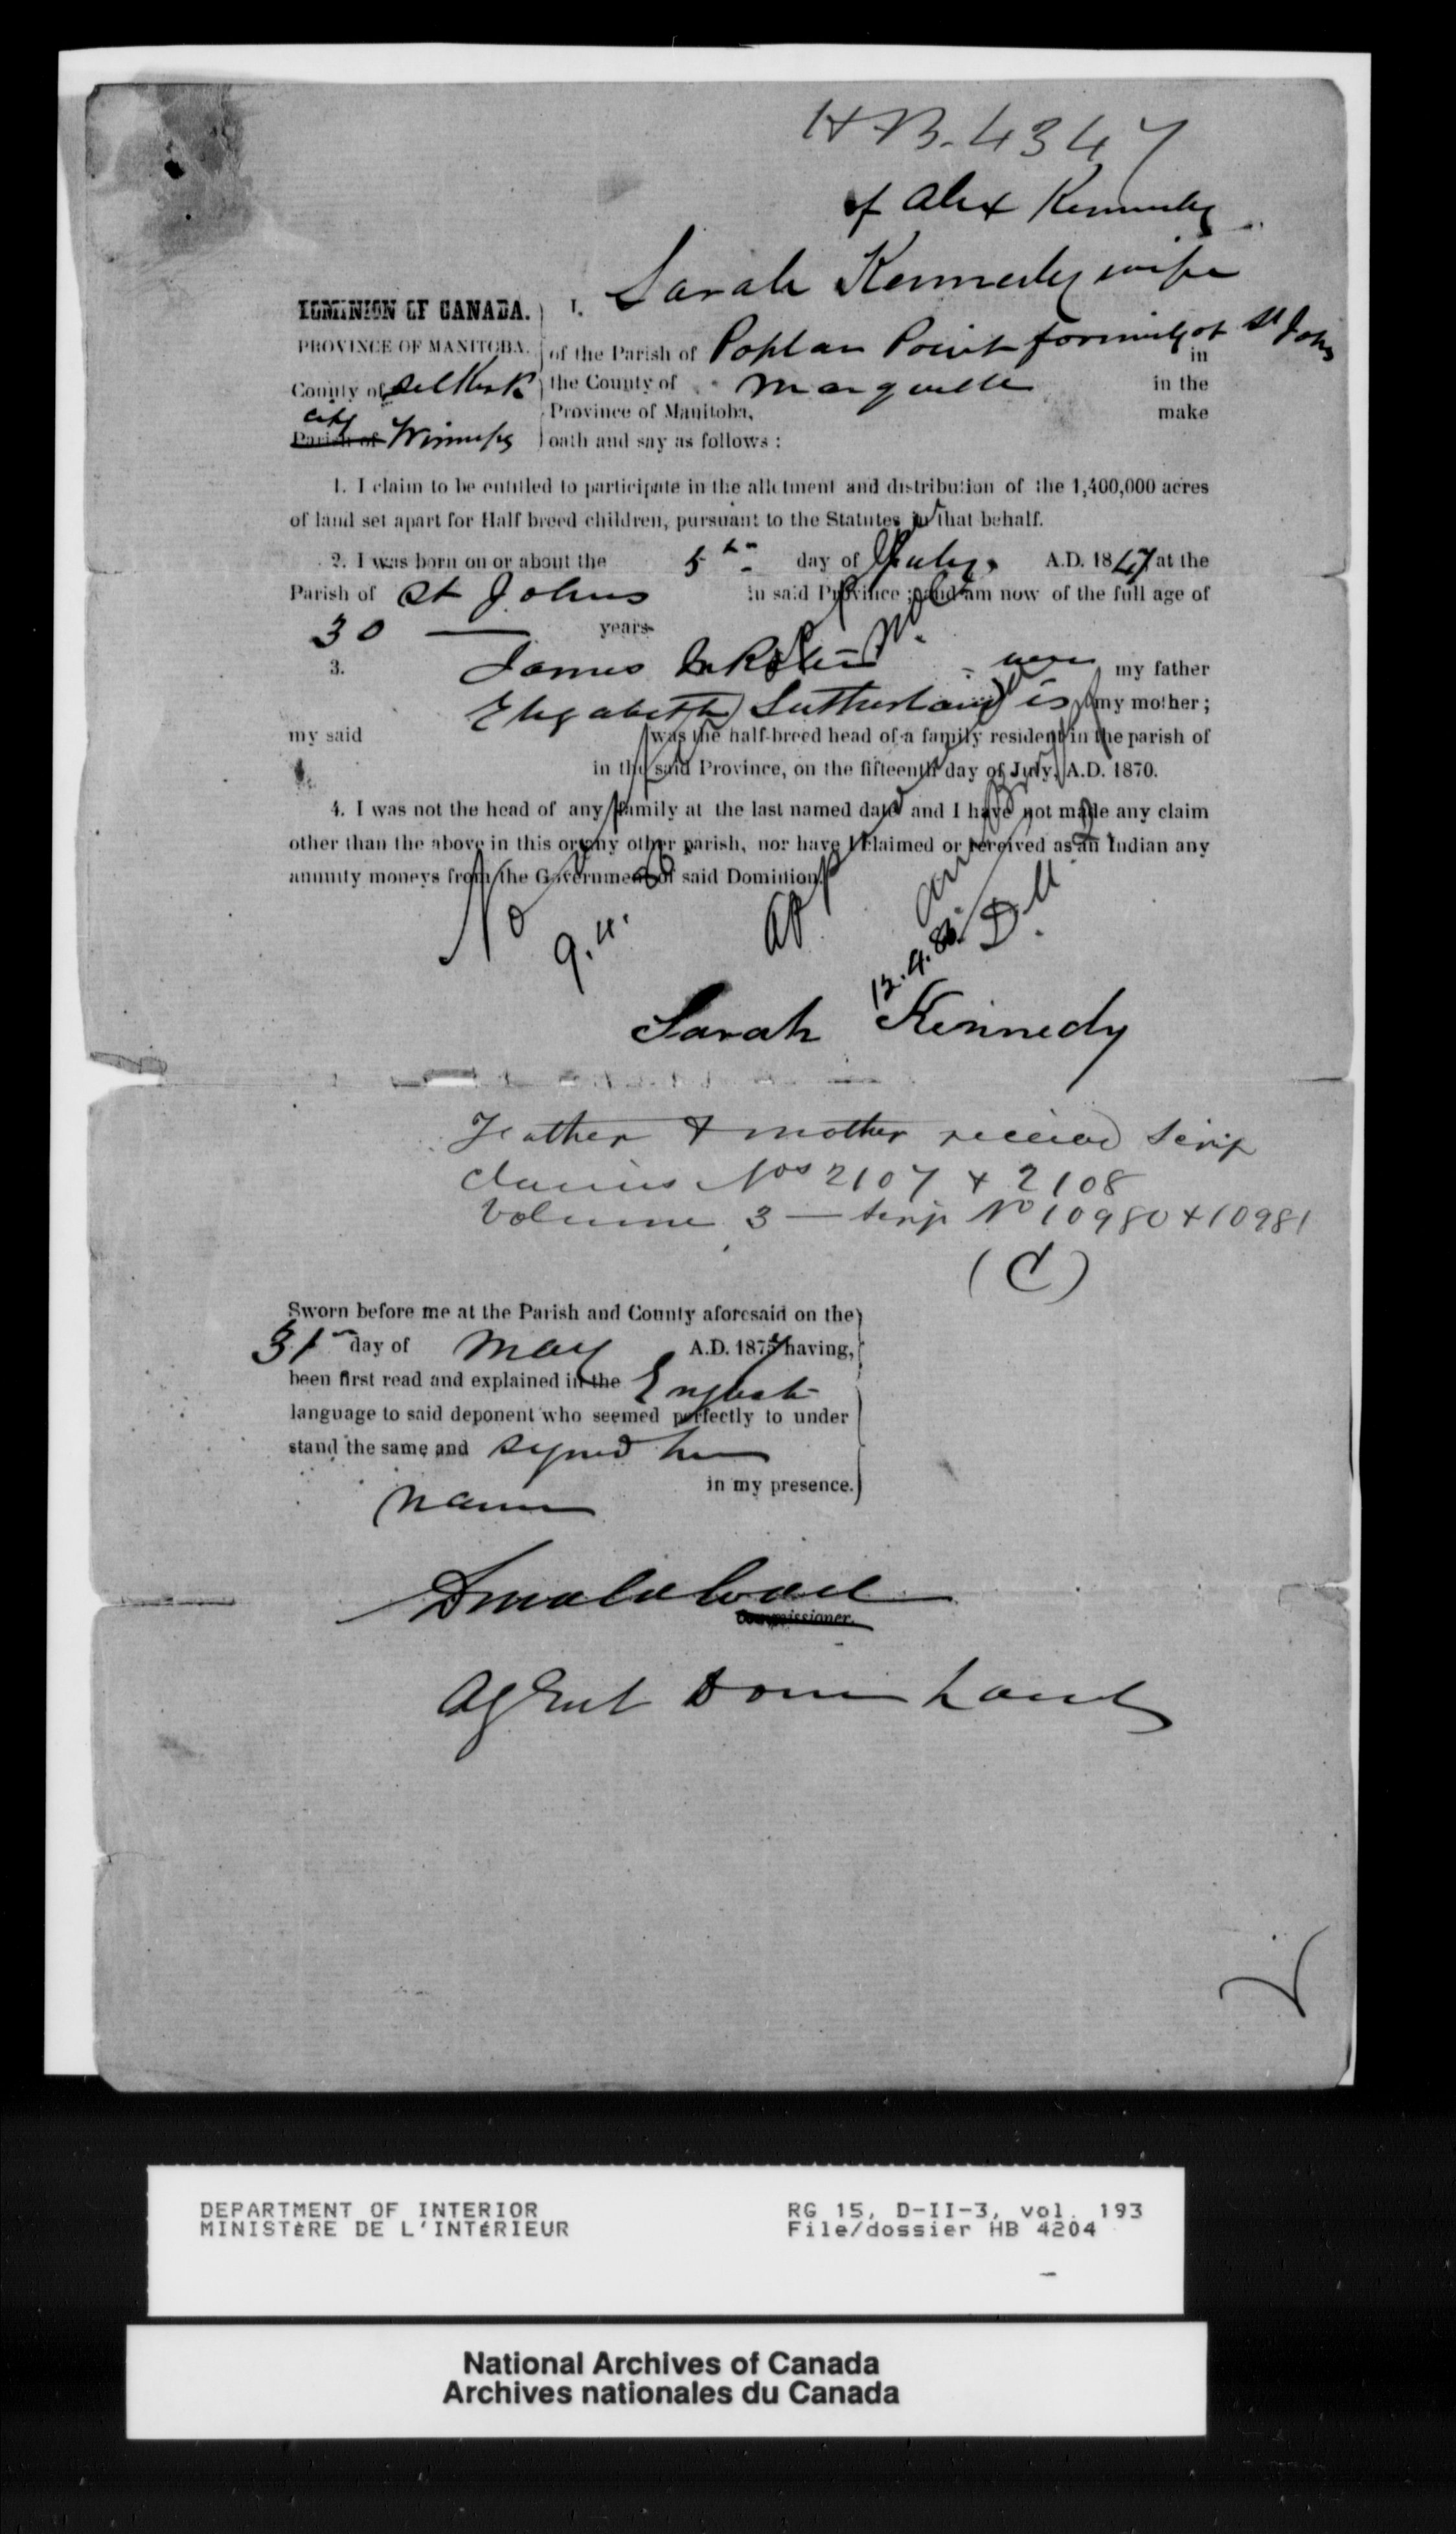 HB. 4347
of Alex Kennedy
I, Sarah Kennedy wife
DOMINION OF CANADA.
PROVINCE OF MANITOBA.
County of Selkirk
City
Parish of Winnipeg
of the Parish of Poplar Point formerly of St Johns
in
the County of Marquette in the
Province of Manitoba, make
oath and say as follows :
1. I claim to be entitled to participate in the allotment and distribution of the 1,400,000 acres
of land set apart for Half breed children, pursuant to the Statutes in that behalf.
2. I was born on or about the 5th day of July A.D. 1847 at the
Parish of St Johns in said Province ; and am now of the full age of
30 years
3. James Inkster were my father
Elizabeth Sutherland is my mother ;
my said was the half-breed head of a family resident in the parish of
in the said Province, on the fifteenth day of July, A.D. 1870.
4. I was not the head of any family at the last named date and I have not made any claim
other than the above in this or any other parish, nor have I claimed or received as an Indian any
annuity moneys from the Government of said Dominion.
No
9.4.
12.4.80. D.M.
Sarah Kennedy
Father & mother received Scrip
Claims Nos 2107 & 2108
Volume 3 — Scrip No 10980 & 10981
(C)
Sworn before me at the Parish and County aforesaid on the
31st day of May A.D. 1877 having,
been first read and explained in the English
language to said deponent who seemed perfectly to under
stand the same and signed her
in my presence.
name
Donald Codd
Commissioner.
Agent Domn Lands
DEPARTMENT OF INTERIOR
MINISTÈRE DE L'INTÉRIEUR
RG 15, D-II-3, vol. 193
File/dossier HB 4204
National Archives of Canada
Archives nationales du Canada